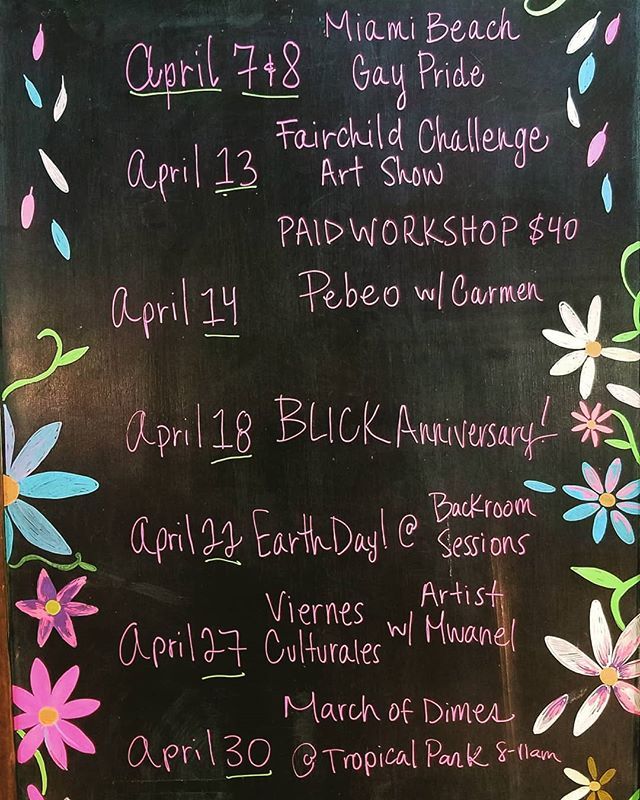 April 7&8 Miami Beach
Gay Pride
April 13 Fairchild Challenge
Art Show
PAID WORKSHOP $40
April 14 Pebeo w/ Carmen
April 18 BLICK Anniversary!
April 22 Earth Day! @ Backroom
Sessions
April 27 Viernes
Culturales w/ Artist
Mwanel
April 30 March of Dimes
@ Tropical Park 8-11am